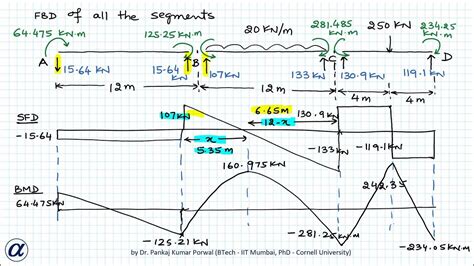 FBD of all the segments
64.475 kN 125.25 kN·m 20 kN/m 281.485 kN·m 250 kN 234.25 kN·m
A B C D
15.64 kN 15.64 kN 107 kN 133 kN 130.9 kN 119.1 kN
12 m 12 m 4 m 4 m
107 kN 6.65 m 130.9 kN
12-x
SFD
-15.64 x -133 kN -119.1 kN
5.35 m
160.975 kN
BMD 242.35
64.475 kN
-125.21 kN -281.25 kN·m -234.05 kN·m
α by Dr. Pankaj Kumar Porwal (BTech - IIT Mumbai, PhD - Cornell University)